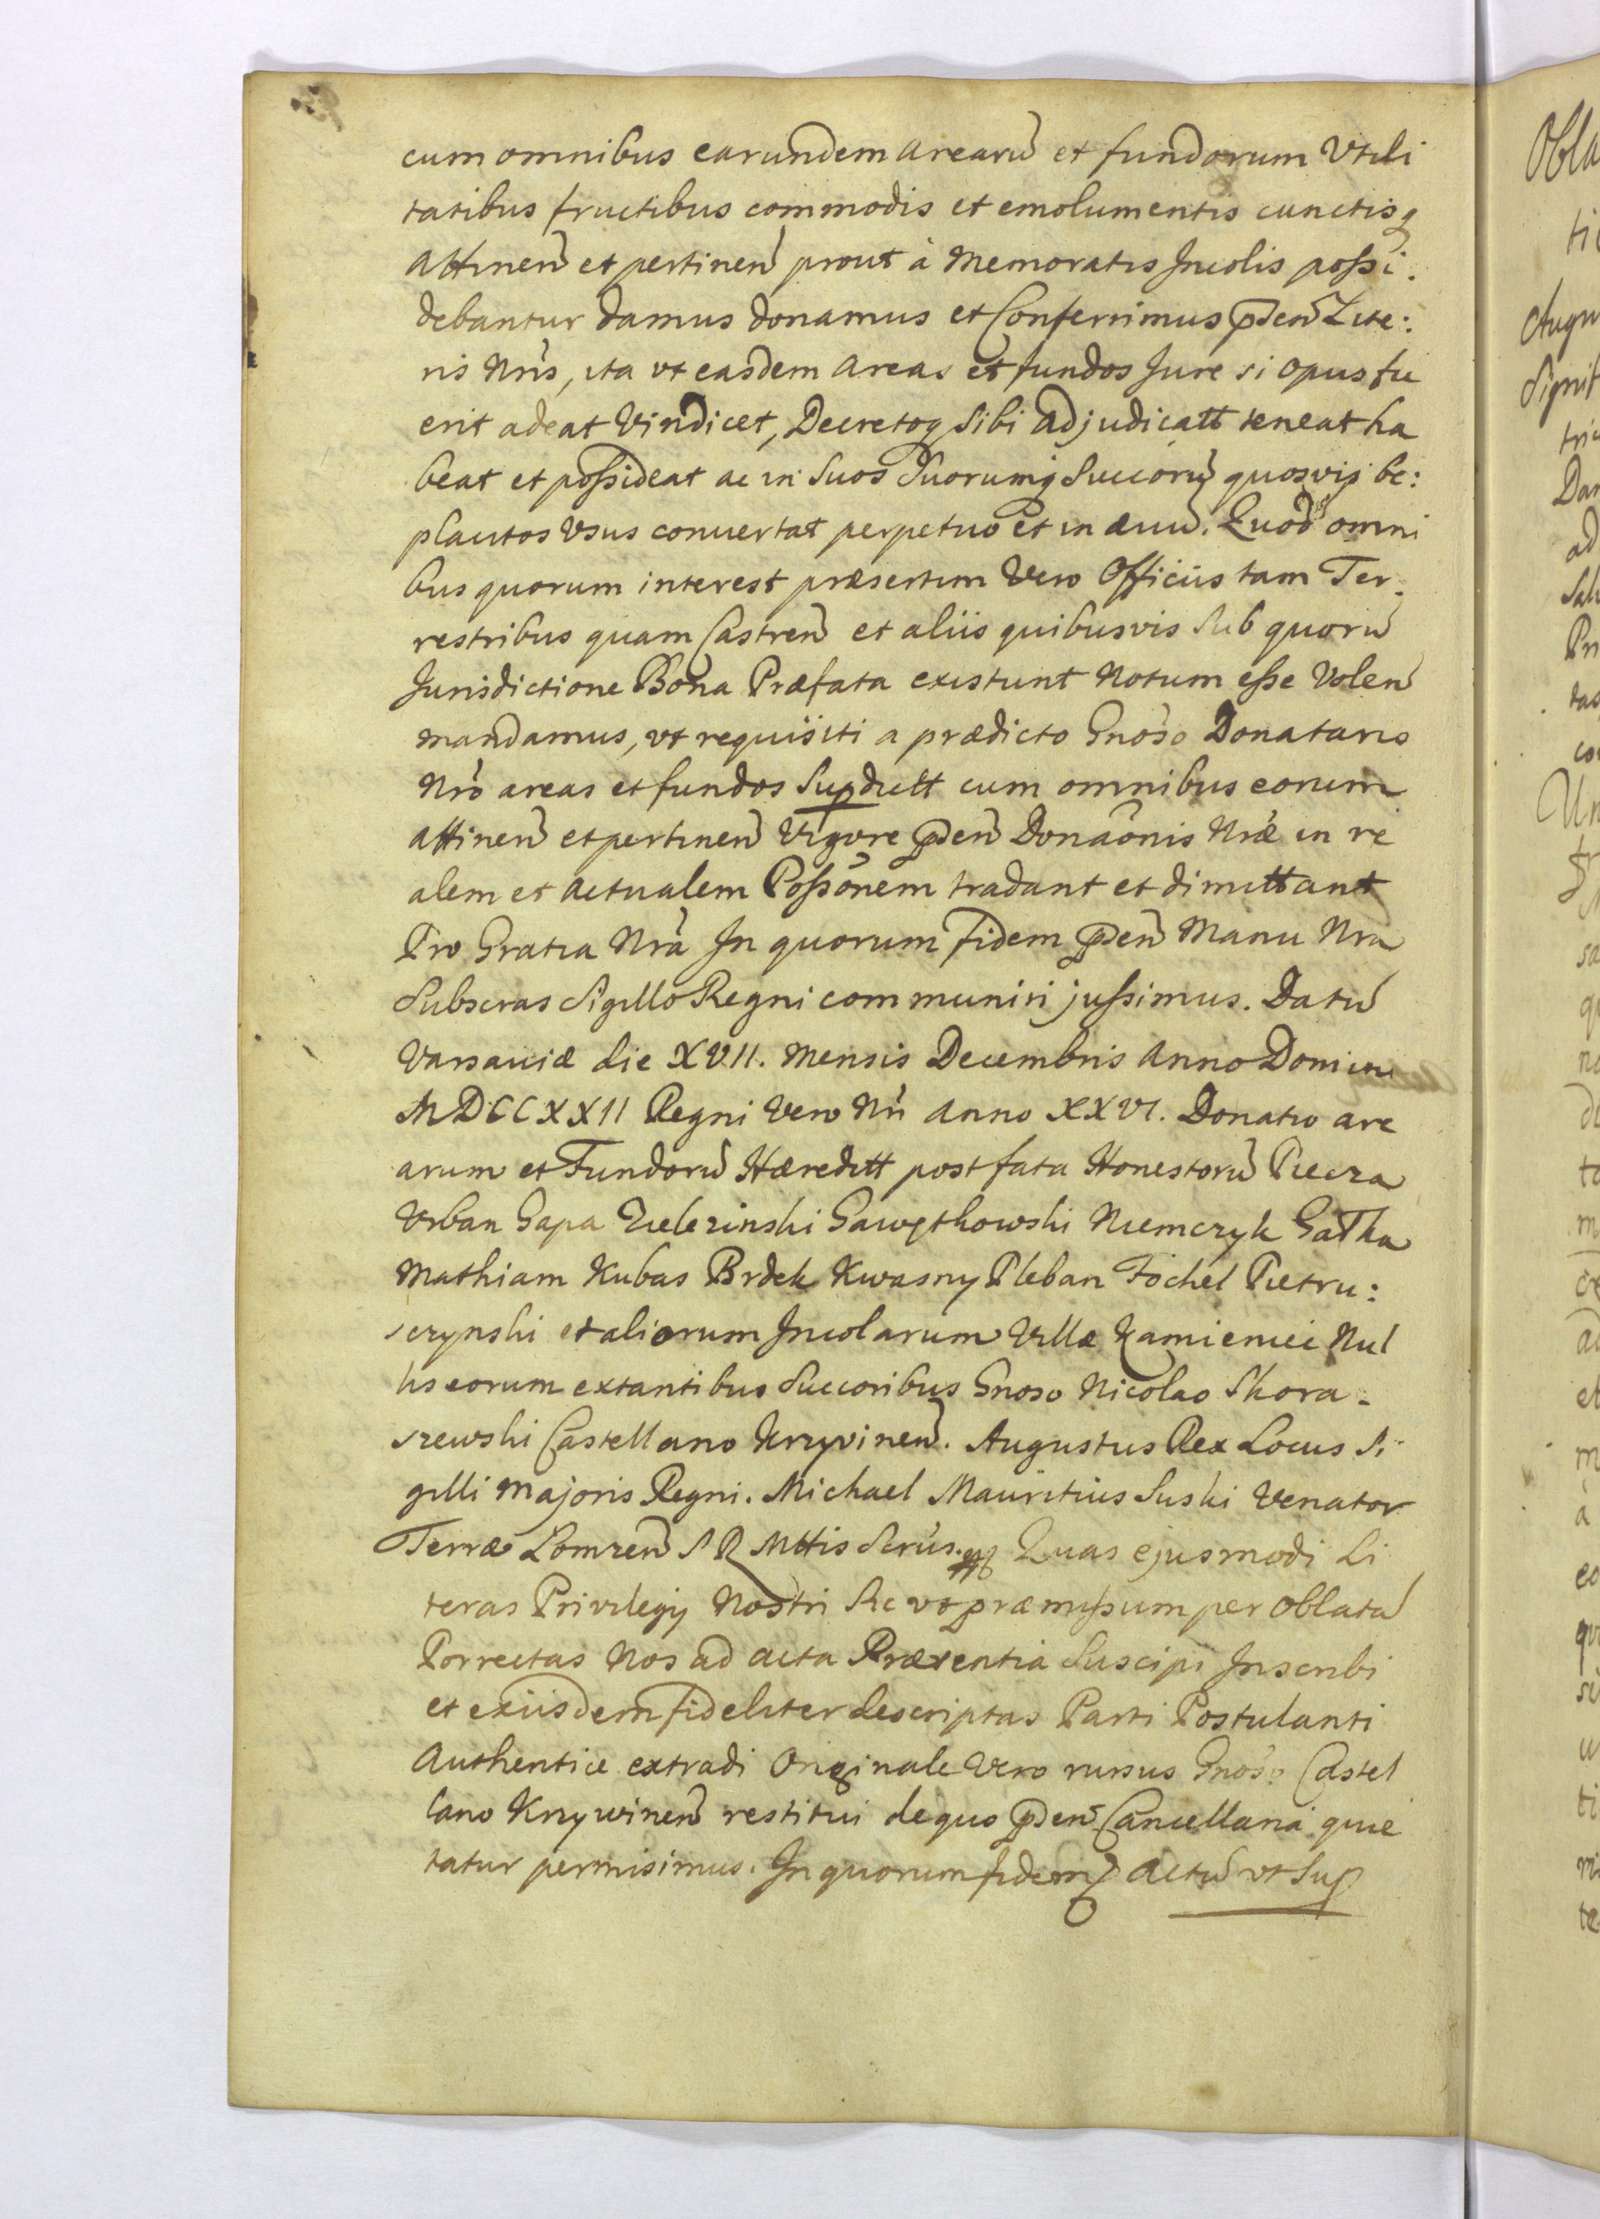 cum omnibus earundem arearū et fundorum Vtili
tatibus fructibus commodis et emolumentis cunctisq
Attinen̄ et pertinen̄ prout à Memoratis Incolis possi.
debantur damus donamus et Conferrimus p̄den̄ Lite:
ris Nrīs, ita vt easdem areas et fundos Jure si opus fu
erit adeat Vindicet, Decretoq Sibi adjudicatt teneat ha
beat et possideat ac in Suos Suorumq Succorū quosvis be:
placitos Vsus convertat perpetuo et in ævū. Quod omni
bus quorum interest præsertim Vero Officiis tam Ter.
restribus quam Castren̄ et aliis quibusvis Sub quorū
Jurisdictione Bona Præfata existunt Notum esse Volen̄
mandamus, vt requisiti a prædicto Gnoso Donatario
Nrō areas et fundos Supdictt cum omnibus eorum
attinen̄ et pertinen̄ Vigore p̄den̄ Donāonis Nræ in re
alem et actualem Possōnem tradant et dimittant
Pro Gratia Nrā In quorum fidem p̄den̄ Manu Nra
Subscras Sigillo Regni communiri jussimus. Datū
Varsaviæ die XVII. Mensis Decembris Anno Domini
MDCCXXII Regni Vero Nri anno XXVI. Donatio are
arum et Fundorū Hæreditt post fata Honestorū Piecza
Vrban Gapa Zielezinski Gawętkowski Niemczyk Gatka
Mathiam Kubas Brdek Kwasny Pleban Fochel Pietru:
szynski et aliorum Incolarum Villæ Kamieniec Nul
lis eorum extantibus Succoribus Gnoso Nicolao Skora.
szewski Castellano Krzyvinen̄. Augustus Rex Locus Si
gilli Majoris Regni. Michael Mauritius Suski Venator
Terræ Lomzen̄ S R Mttis Scrus. Quas ejusmodi Li
teras Privilegij Nostri Sic vt præmissum per Oblatā
Porrectas Nos ad acta Præsentia Suscipi Inscribi
et exiisdem fideliter descriptas Parti Postulanti
Authentice extradi Originale Vero rursus Gnoso Castel
lano Krzywinen̄ restitui de quo p̄den̄ Cancellaria quie
tatur permisimus. In quorum fidem Actū vt Sup